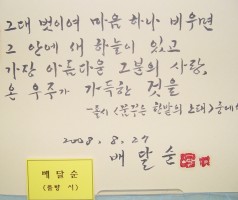 그대 벗이여 마음 하나 비우면
그 안에 새 하늘이 있고
가장 아름다운 그분의 사랑,
온 우주가 가득한 것을
2008. 8. 27
배 달 순
배 달 순
(졸방 시)